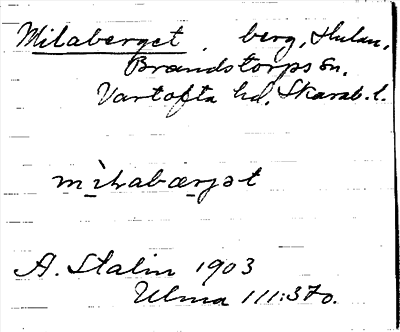 Milaberget, berg, Hulan,
Brandstorps sn,
Vartofta hd, Skarab. l.
mìlabærjət
A. Stalin 1903
Ulma 111:370.